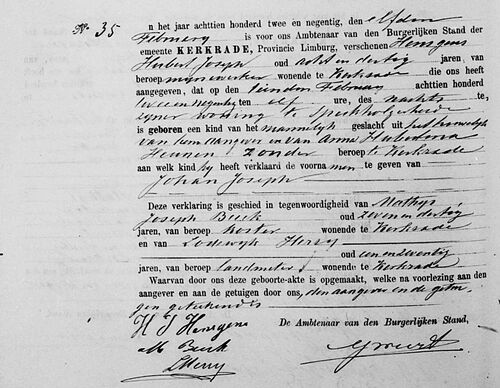 No 35
n het jaar achttien honderd twee en negentig, den elfden
Februarij is voor ons Ambtenaar van den Burgerlijken Stand der
emeente KERKRADE, Provincie Limburg, verschenen Hensgens
Hubert Joseph oud acht en dertig jaren, van
beroep mijnwerker wonende te Kerkrade die ons heeft
aangegeven, dat op den tienden Februarij achttienhonderd
twee en negentig elf ure, des nachts te,
zijner woning te Spekholzerheide
is geboren een kind van het mannelijk geslacht uit het huwelijk
van hem aangever en van Anna Hubertina
Heunen zonder beroep te Kerkrade
aan welk kind hij heeft verklaard de voornamen te geven van
Johan Joseph
Deze verklaring is geschied in tegenwoordigheid van Mathijs
Joseph Beck oud zeven en dertig
jaren, van beroep koster wonende te Kerkrade
en van Lodewijk Herry
oud een en zeventig
jaren, van beroep landmeter wonende te Kerkrade
Waarvan door ons deze geboorte-akte is opgemaakt, welke na voorlezing aan den
aangever en aan de getuigen door ons, den aangever en de getui
gen geteekend is
H J Hensgens
M Beck
L Herry
De Ambtenaar van den Burgerlijken Stand,